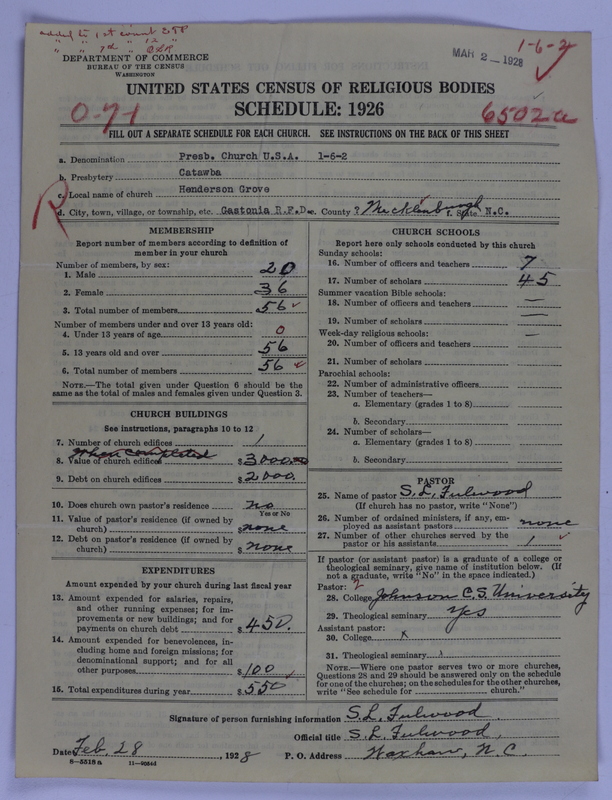 added to 1st count
MAR 2 - 1928
1-6-2
DEPARTMENT OF COMMERCE
BUREAU OF THE CENSUS
WASHINGTON
UNITED STATES CENSUS OF RELIGIOUS BODIES
SCHEDULE: 1926
0-71
6502a
FILL OUT A SEPARATE SCHEDULE FOR EACH CHURCH. SEE INSTRUCTIONS ON THE BACK OF THIS SHEET
a. Denomination Presb. Church U.S.A. 1-6-2
b. Presbytery Catawba
c. Local name of church Henderson Grove
R
d. City, town, village, or township, etc. Gastonia R.F.D. e. County ? Mecklenburgh f. State N.C.
MEMBERSHIP
Report number of members according to definition of
member in your church
Number of members, by sex:
1. Male 20
2. Female 36
3. Total number of members 56
Number of members under and over 13 years old:
4. Under 13 years of age 0
5. 13 years old and over 56
6. Total number of members 56
NOTE.—The total given under Question 6 should be the
same as the total of males and females given under Question 3.
CHURCH BUILDINGS
See instructions, paragraphs 10 to 12
7. Number of church edifices 1
When completed
8. Value of church edifices $ 3000.00
9. Debt on church edifices $ 2000.
10. Does church own pastor's residence no
Yes or No
11. Value of pastor's residence (if owned by
church) $ none
12. Debt on pastor's residence (if owned by
church) $ none
EXPENDITURES
Amount expended by your church during last fiscal year
13. Amount expended for salaries, repairs,
and other running expenses; for im-
provements or new buildings; and for
payments on church debt $ 450.
14. Amount expended for benevolences, in-
cluding home and foreign missions; for
denominational support; and for all
other purposes $ 100
15. Total expenditures during year $ 550
CHURCH SCHOOLS
Report here only schools conducted by this church
Sunday schools:
16. Number of officers and teachers 7
17. Number of scholars 45
Summer vacation Bible schools:
18. Number of officers and teachers —
19. Number of scholars —
Week-day religious schools: —
20. Number of officers and teachers
21. Number of scholars
Parochial schools:
22. Number of administrative officers
23. Number of teachers—
a. Elementary (grades 1 to 8)
b. Secondary
24. Number of scholars—
a. Elementary (grades 1 to 8)
b. Secondary
PASTOR
25. Name of pastor S. L. Fulwood
(If church has no pastor, write "None")
26. Number of ordained ministers, if any, em-
ployed as assistant pastors none
27. Number of other churches served by the
pastor or his assistants 1
If pastor (or assistant pastor) is a graduate of a college or
theological seminary, give name of institution below. (If
not a graduate, write "No" in the space indicated.)
Pastor: 2
28. College Johnson C. S. University
29. Theological seminary Yes
Assistant pastor:
30. College x
31. Theological seminary
NOTE.—Where one pastor serves two or more churches,
Questions 28 and 29 should be answered only on the schedule
for one of the churches; on the schedules for the other churches,
write "See schedule for church."
Signature of person furnishing information S. L. Fulwood
Official title S. L. Fulwood,
Date Feb. 28, 1928 P. O. Address Waxhaw, N. C.
8-5518a 11-9054d